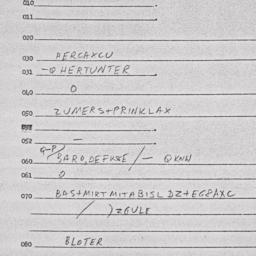 010
011
020
030 AERCAXCU
031 -Q HERTUNTER
040 O
050 ZUMERS+PRINKLAX
052 —
Q-P
060 BARO,DEFUSE/— QKNN
061 O
070 BAS+MIRTMITABISL DZ+EG8AXC
/ )ZGULE
080 BLOTER